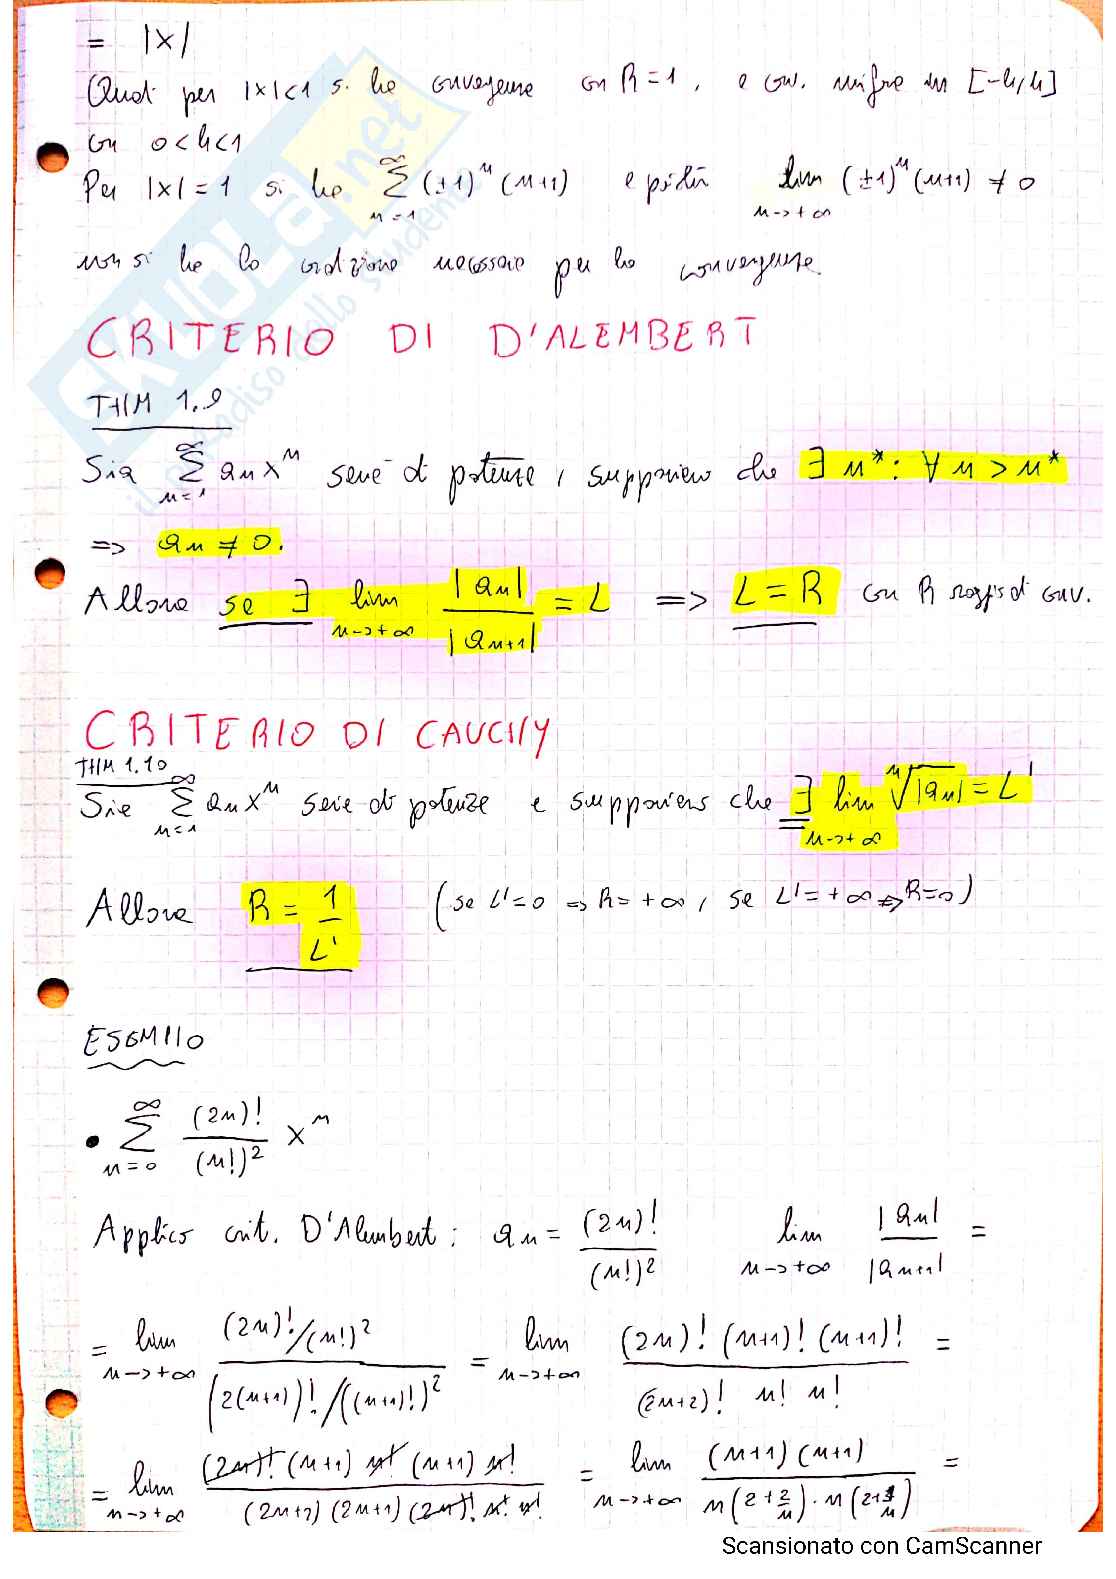 = |x|
Quindi per |x|<1 si ha convergenza con R=1, e conv. uniforme in [-h,h]
con 0<h<1
Per |x|=1 si ha ∑_{n=1}^∞ (±1)^n (n+1) e poiché lim_{n→+∞} (±1)^n (n+1) ≠ 0
non si ha la condizione necessaria per la convergenza.
CRITERIO DI D'ALEMBERT
THM 1.9
Sia ∑_{n=1}^∞ a_n x^n serie di potenze, supponiamo che ∃ n*: ∀ n > n*
=> a_n ≠ 0.
Allora se ∃ lim_{n→+∞} |a_n|/|a_{n+1}| = L => L = R con R raggio di conv.
CRITERIO DI CAUCHY
THM 1.10
Sia ∑_{n=1}^∞ a_n x^n serie di potenze e supponiamo che ∃ lim_{n→+∞} ⁿ√|a_n| = L'
Allora R = 1/L' (se L'=0 => R=+∞, se L'=+∞ => R=0)
ESEMPIO
• ∑_{n=0}^∞ (2n)!/(n!)² x^n
Applico crit. D'Alembert: a_n = (2n)!/(n!)² lim_{n→+∞} |a_n|/|a_{n+1}| =
= lim_{n→+∞} ((2n)!/(n!)²)/((2(n+1))!/((n+1)!)²) = lim_{n→+∞} ((2n)! (n+1)! (n+1)!)/((2n+2)! n! n!) =
= lim_{n→+∞} ((2n)! (n+1) n! (n+1) n!)/((2n+2) (2n+1) (2n)! n! n!) = lim_{n→+∞} ((n+1) (n+1))/(n(2+2/n)·n(2+1/n)) =
SKUOLA.net
il paradiso dello studente
Scansionato con CamScanner